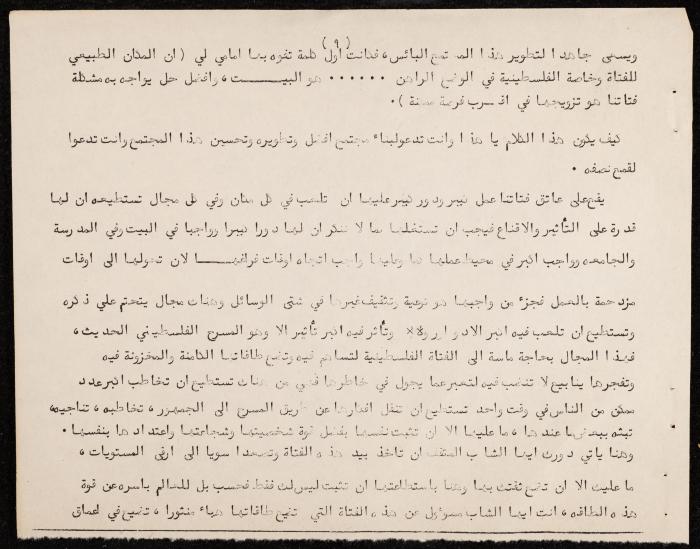 (٩)
ويسعى جاهدا لتطوير هذا المجتمع البائس، فكانت أول كلمة تفوه بها امامي لي ( ان المكان الطبيعي
للفتاة وخاصة الفلسطينية في الوضع الراهن ...... هو البيـــت، وافضل حل يواجه به مشكلة
فتاتنا هو تزويجها في اقـرب فرصة ممكنة ).
كيف يكون هذا الكلام يا هذا وانت تدعو لبناء مجتمع افضل وتطويره وتحسين هذا المجتمع وانت تدعوا
لقمع نصفه .
يقع على عاتق فتاتنا عمل كبير ودور كبير عليها ان تلعب في كل مكان وفي كل مجال تستطيعه ان لها
قدرة على التأثير والاقناع فيجب ان تستغلها كما لا ننكر ان لها دورا كبيرا وواجبا في البيت وفي المدرسة
والجامعه وواجب اكبر في محيط عملها كما وعليها واجب اتجاه اوقات فراغهـــا لان تحولها الى اوقات
مزدحمة بالعمل فجزء من واجبها هو توعية وتثقيف غيرها في شتى الوسائل وهناك مجال يتحتم علي ذكره
وتستطيع ان تلعب فيه اكبر الادوار وتأثر فيه اكبر تأثير الا وهو المسرح الفلسطيني الحديث،
فهذا المجال بحاجة ماسة الى الفتاة الفلسطينية لتساهم فيه وتضع طاقاتها الكامنة والمخزونة فيه
وتفجرها ينابيع لا تنضب فيه لتعبر عما يجول في خاطرها فهي من هناك تستطيع ان تخاطب اكبر عدد
ممكن من الناس في وقت واحد تستطيع ان تنقل افكارها عن طريق المسرح الى الجمهور، تخاطبه، تناجيه،
تبثه بعض ما عندها، ما عليها الا ان تثبت نفسها بفضل قوة شخصيتها وشجاعتها واعتدادها بنفسها.
وهنا يأتي دورك ايها الشاب المثقف ان تاخذ بيد هذه الفتاة وتصعدا سويا الى ارقى المستويات،
ما عليك الا ان تضع ثقتك بها وهنا باستطاعتها ان تثبت ليس لك فقط فحسب بل للعالم باسره عن قوة
هذه الطاقه، انت ايها الشاب مسؤول عن هذه الفتاة التي تضيع طاقاتها هباء منثورا، تضيع في اعماق